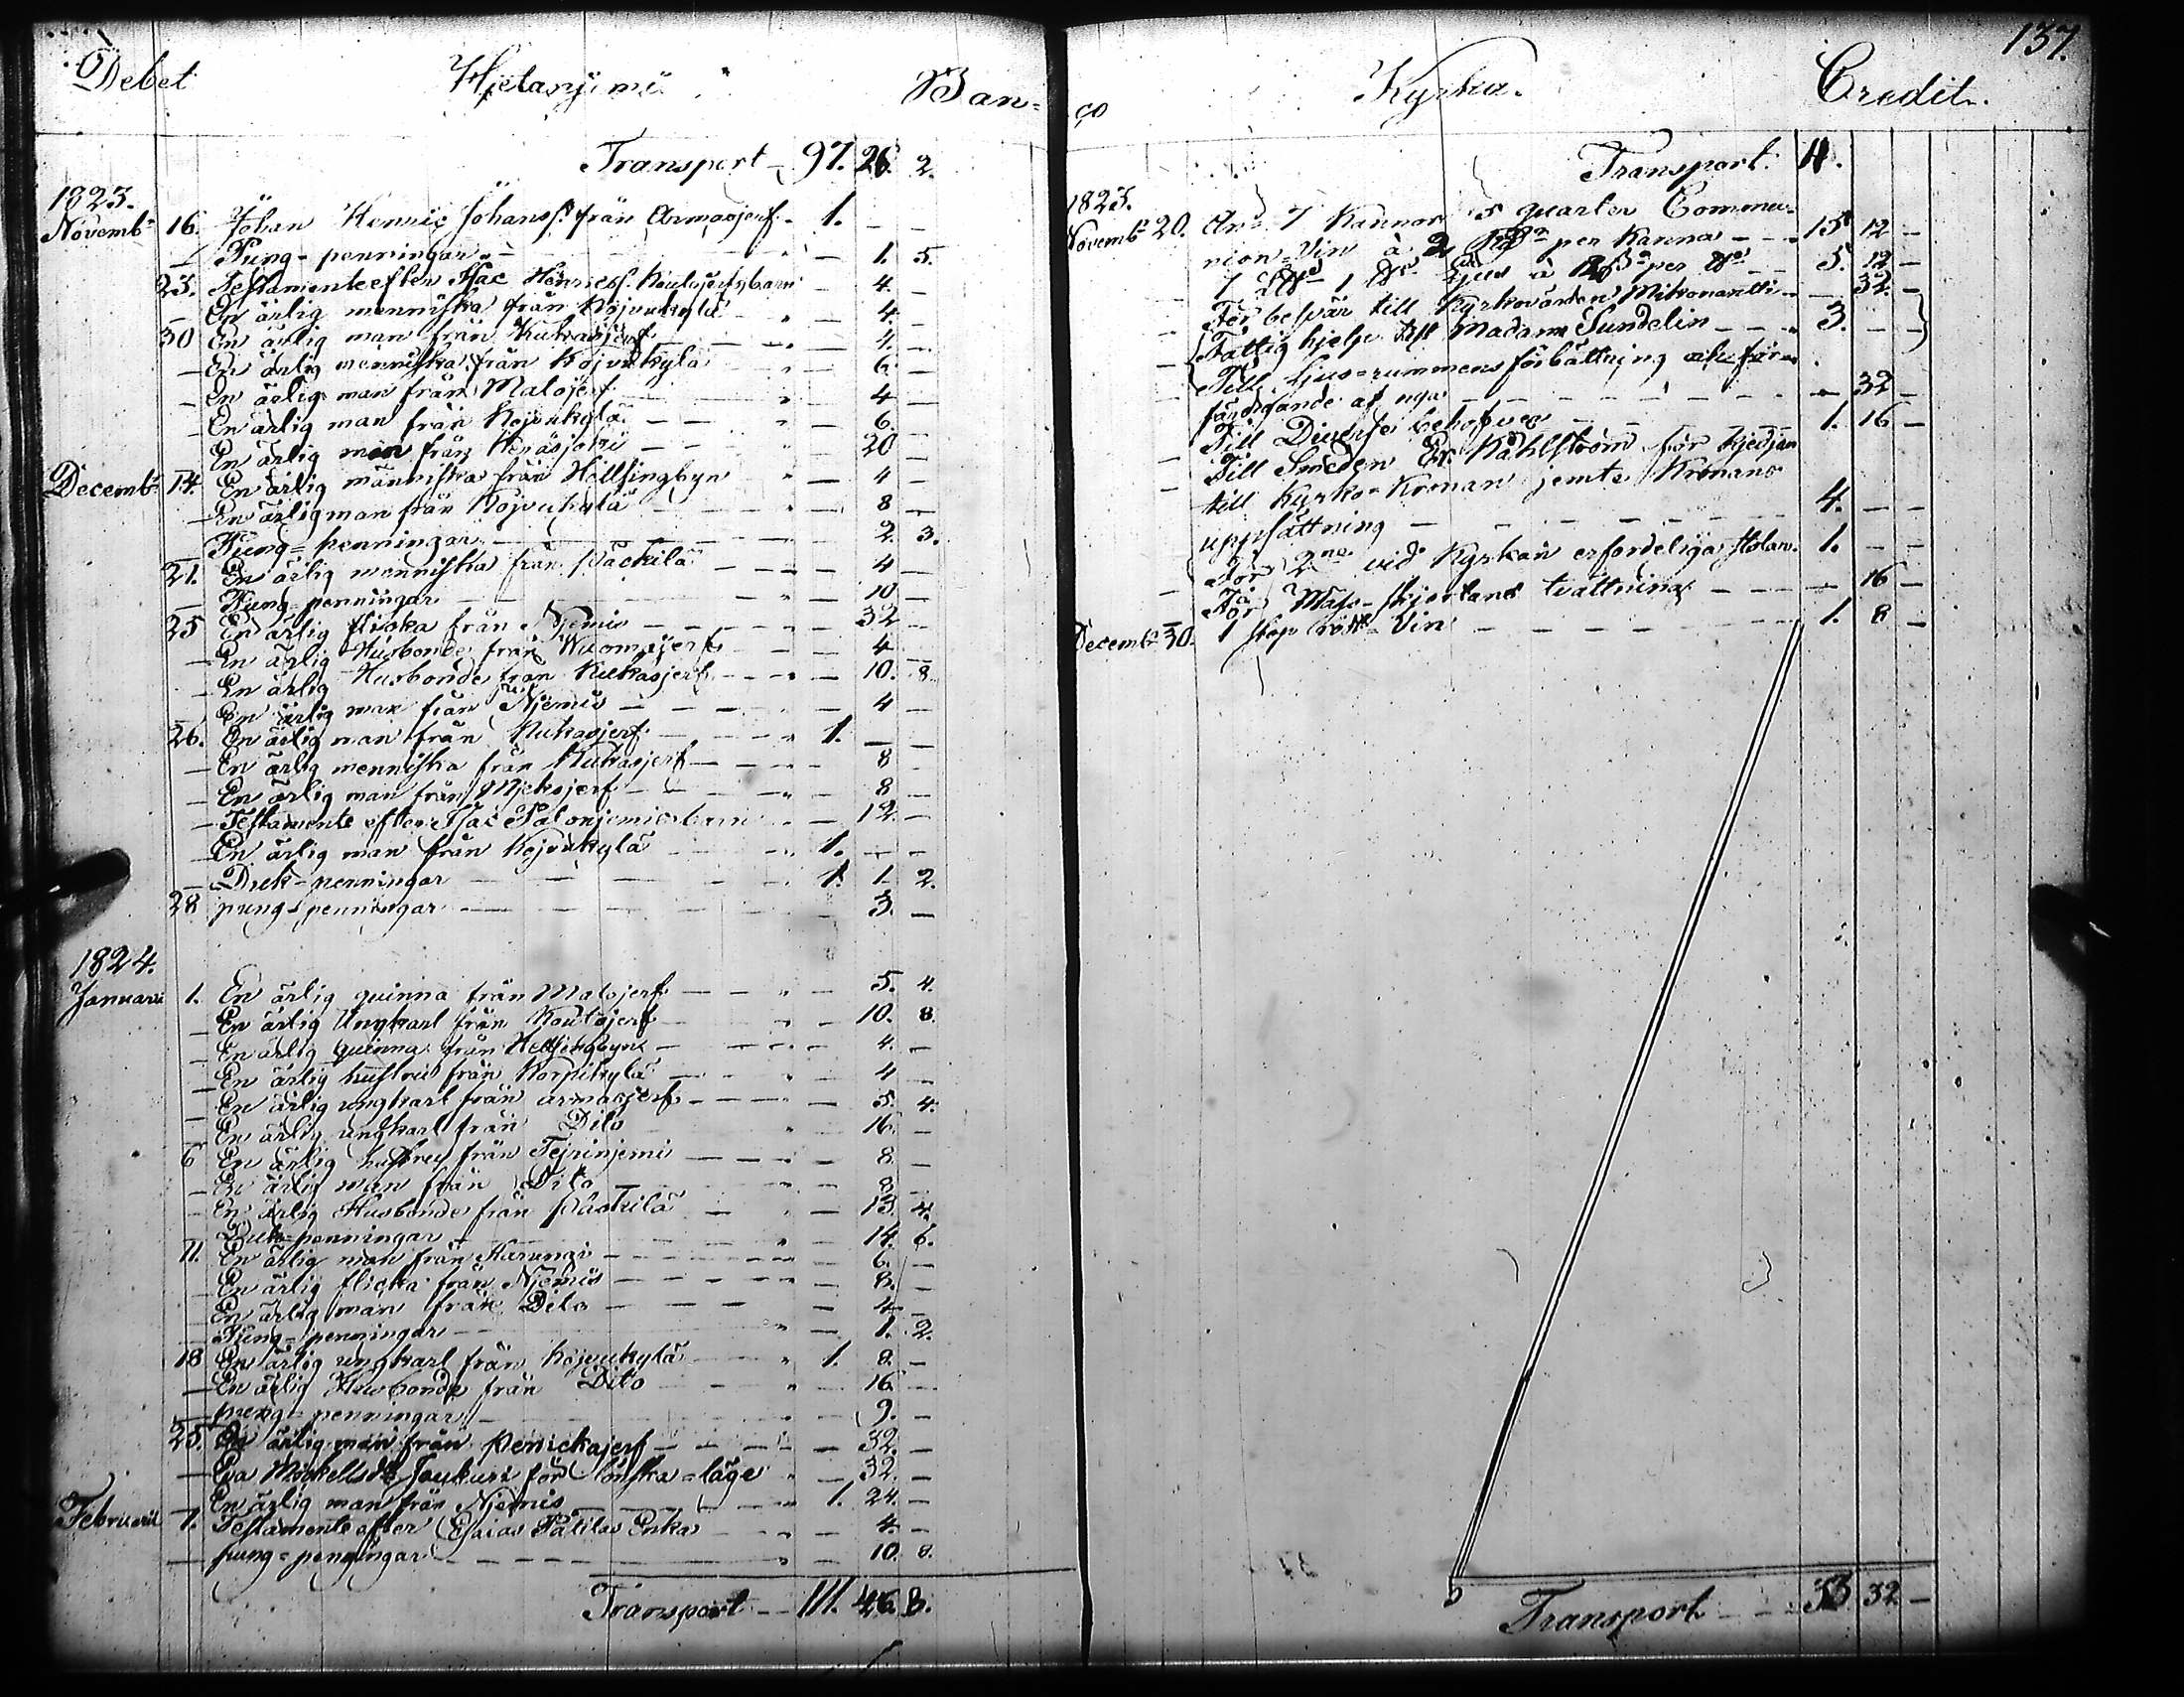 137.
Debet Hjetanjemi Ban=
Transport - 97. 26. 2.
1823.
Novembr 16. Johan Henric Johanss. från Armasjerf - 1. - -
- Pung-penningar - - 1. 5.
23. Testamente efter Isac Henricss. Koutojerfvbarn - 4. -
- En ärlig menniska från Kojvukylä - 4. -
30 En ärlig man från Kukasjerf - 4. -
- En ärlig menniska från Kojvukylä - 6. -
- En ärlig man från Matojerf - 4 -
- En ärlig man från Kojvukylä - 6. -
En ärlig man från - 20 -
Decembr 14. En ärlig människa från Hellsingbyn - 4 -
- En ärlig man från Kojvukylä - 8 -
- Pung=penningar - 2. 3.
21. En ärlig menniska från Päckilä - 4 -
- Pung-penningar - 10 -
25 En ärlig flicka från Njemis - 32 -
- En ärlig Husbonde från Wuomajerf - 4 -
- En ärlig Husbonde från Kukasjerf - 10. 8.
- En ärlig man från Njemis - 4 -
26. En ärlig man från Kukasjerf - 1. - -
- En ärlig menniska från Kukasjerf - 8 -
- En ärlig man från Mjekojerf - 8 -
- Testamente efter Isac Palonjemis barn - 12. -
- En ärlig man från Kojvukylä - 1. - -
- Duk-penningar - 1. 1. 2.
28 pung-penningar - 3. -
1824.
Januari 1. En ärlig quinna från Matojerf - 5. 4.
- En ärlig Ungkarl från Koutojerf - 10. 8.
- En ärlig quinna från Hellsingbyn - 4. -
- En ärlig hustru från Korpikylä - 4 -
- En ärlig ungkarl från armasjerf - 5. 4.
- En ärlig ungkarl från Dito - 16. -
6 En ärlig hustru från Tejrinjemi - 8. -
- En ärlig man från Dito - 8 -
- En ärlig Husbonde från Päckilä - 13. 4.
Duk-penningar - 14. 6.
11. En ärlig man från Karungi - 6. -
- En ärlig flicka från Njemis - 8. -
- En ärlig man från Dito - 4 -
- Pung-penningar - 1. 2.
18 En ärlig ungkarl från Kojvukylä - 1. 8. -
- En ärlig Husbonde från Dito - 16 -
- pung-penningar - 9. -
25. En ärlig man från Penickajerf - 32. -
- Eva Mickellsdr för lönska=läge - 32. -
- En ärlig man från Njemis - 1. 24. -
Februari 1. Testamente efter Esaias Palilas Enka - 4. -
- pung=penningar - 10. 8.
Transport - 111. 46. 3.
co Kyrka. Credit.
Transport. 11.
1823.
Novembr 20. 7 Kannor 5 quarter Commu-
nion-Vin à 2 per Kanna - 15 12 -
Ljus à per - 5. 12 -
För besvär till Kyrkovärden Mikonantti - 32. -
Fattig hjelp till Madam Sundelin - 3. - -
Till Ljus-rummens förbättring och för-
färdigande af nya - 32 -
Till Diverse behofver - 1. 16 -
Till Smeden Er. Kåhlström för kjedjan
till Kyrko-Kronan jemte Kronans
uppsättning - 4. - -
För 2ne vid Kyrkan erforderliga Stolar. 1. - -
För Mäss-skjortans tvättning - 16 -
Decembr 30. 1 stop rött Vin - 1. 8 -
Transport - 33 32 -